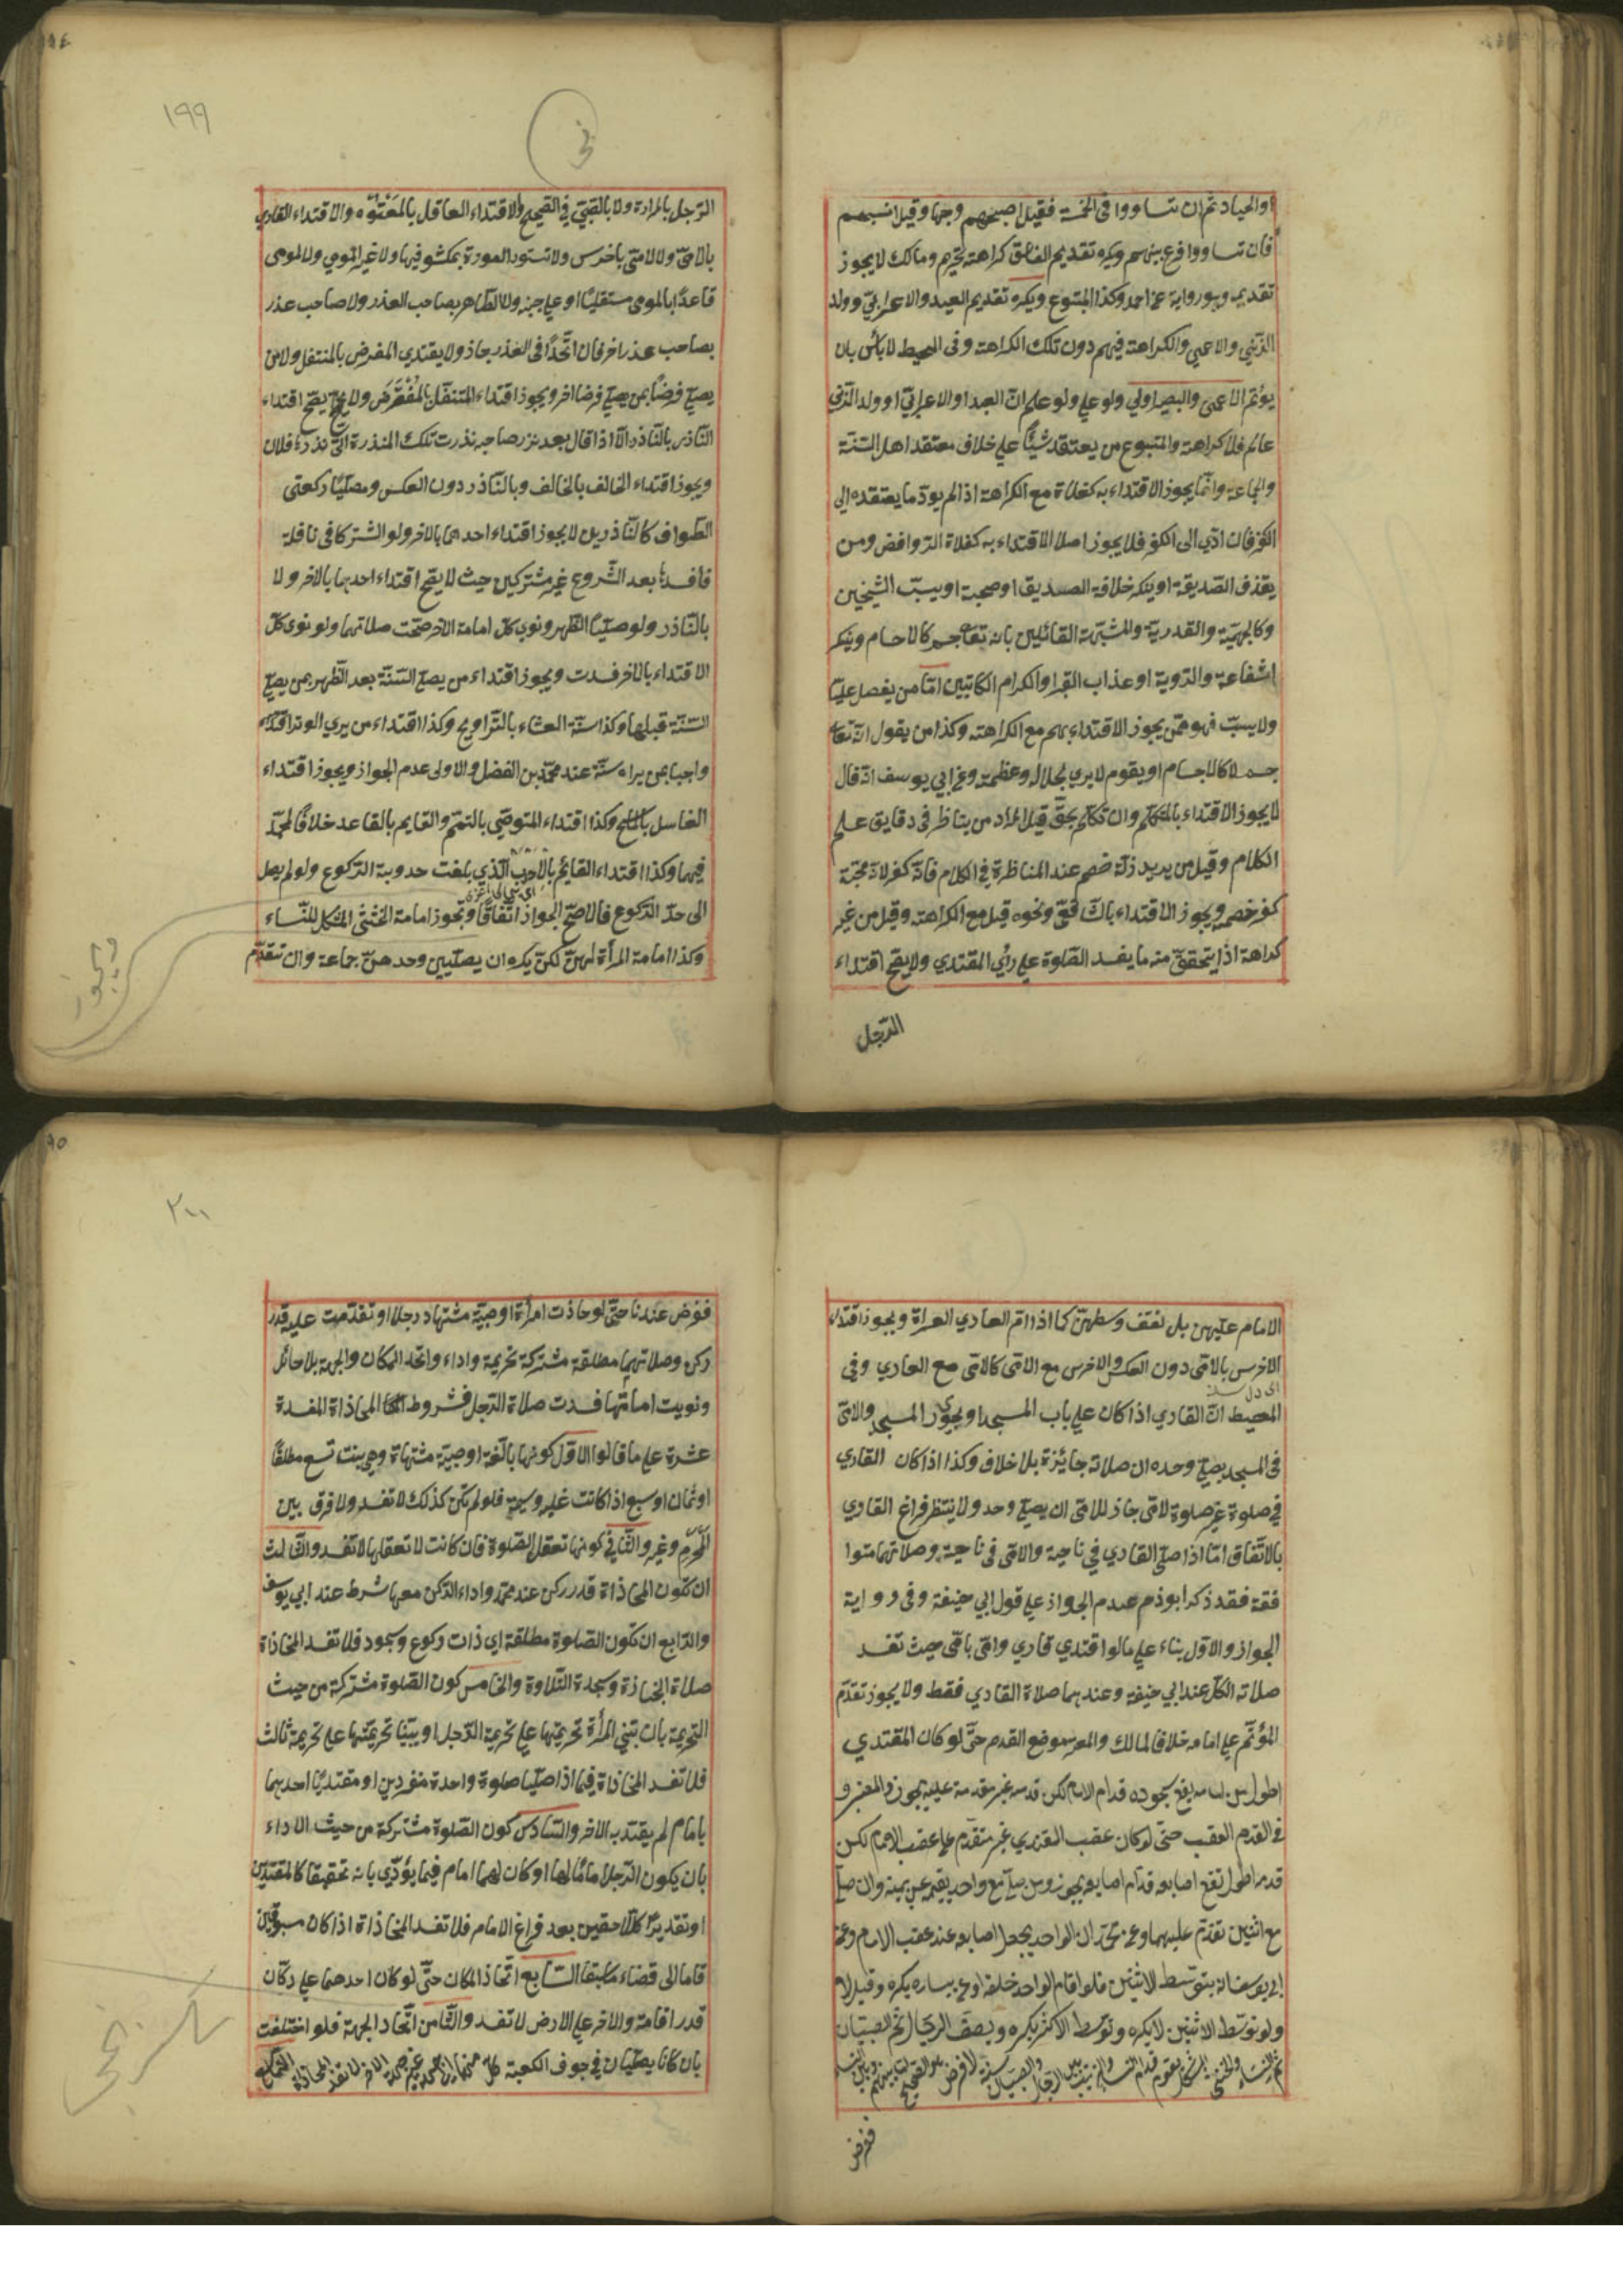 اوالحياد ثم ان تساووا فى الخمسة فقيل اصبحهم وجها وقيل انسبهم
فان تساووا فرع بينهم ويكره تقديم الفاسق كراهة تحريم ومالك لايجوز
تقديمه وهو رواية عن احمد وكذا المبتدع ويكره تقديم العبد والاعرابي وولد
الزنى والاعمى والكراهة فيهم دون تلك الكراهة وفى المحيط لا بأس بان
يؤتم الاعمى والبصير اولي ولو علم انّ العبد او الاعرابي او ولد الزنى
عالم فلا كراهة والمتبوع من يعتقد شيئًا على خلاف معتقد اهل السنّة
والجماعة وانما يجوز الاقتداء به مع الكراهة اذا لم يود ما يعتقده الى
الكفر فان ادّى الى الكفر فلا يجوز اصلا الاقتداء به كغلاة الروافض ومن
يقذف الصديقة او ينكر خلافة الصديق او صحبته او يسبّ الشيخين
وكالجهميّة والقدريّة والمشبّهة القائلين بانه تعا جسم كالاجسام وينكر
الشفاعة والرّوية او عذاب القبر او الكرام الكاتبين امّا من يفضل عليّا
ولايسبّ فهو ممّن يجوز الاقتداء بهم مع الكراهة وكذا من يقول انّه تعا
جسم لا كالاجسام او يقول لا يرى لجلاله وعظمته وعن ابي يوسف انه قال
لايجوز الاقتداء بالمتكلم وان تكلّم بحقّ قيل المراد من يناظر فى دقايق علم
الكلام وقيل من يريد زلة خصمه عند المناظرة في الكلام فانّه كفر لانه محبّة
كفر خصمه ويجوز الاقتداء بالشافعيّ ونحوه قيل مع الكراهة وقيل من غير
كراهة اذا يتحقق منه ما يفسد الصّلوة على رأي المقتدي ولايصح اقتداء
الرّجل
١٩٩
الرّجل بالمرأة ولا بالصّبيّ في الصّحيح ولا اقتداء العاقل بالمعتوه ولا اقتداء القاري
بالامّيّ ولا الامّيّ باخرس ولا مستور العورة بمكشوفيها ولا غير المومي ولا المومى
قاعدًا بالمومى مستلقيًا او على جنبه ولا الطّاهر بصاحب العذر ولا صاحب عذر
بصاحب عذر اخر فان اتّحدا فى العذر جاز ولا يقتدي المفترض بالمتنفل ولا من
يصلّي فرضًا بمن يصلّي فرضا اخر ويجوز اقتداء المتنفّل بالمُفْتَرِض ولا يصح اقتداء
النّاذر بالنّاذر الّا اذا قال بعد نذر صاحبه نذرت تلك المنذورة الّتى نذرها فلان
ويجوز اقتداء الحالف بالحالف وبالنّاذر دون العكس ومصلّيًا ركعتى
الطّواف كالنّاذرين لايجوز اقتداء احدهما بالاخر ولو اشتركا فى نافلة
فافسداها بعد الشّروع غير مشتركين حيث لايصحّ اقتداء احدهما بالاخر ولا
بالنّاذر ولو صلّيا الظّهر ونوى كلّ امامة الاخر صحّت صلاتهما ولو نوى كلّ
الاقتداء بالاخر فسدت ويجوز اقتداء من يصلّي السّنّة بعد الظّهر بمن يصلّي
السّنّة قبلها وكذا سنّة العشاء بالتّراويح وكذا اقتداء من يري الوتر
واجبا بمن يراه سنّة عند محمّد بن الفضل والاولى عدم الجواز ويجوز اقتداء
الغاسل بالماسح وكذا اقتداء المتوضّي بالمتيمّم والقايم بالقاعد خلافًا لمحمّد
فيهما وكذا اقتداء القايم بالاحدب الّذي بلغت حدوبته الرّكوع ولو لم يصل
الى حدّ الرّكوع فالاصحّ الجواز اتّفاقًا وتجوز امامة الخنثى المشكل للنّساء
وكذا امامة المرأة لهنّ لكنّ يكره ان يصلّين وحدهنّ جماعة وان تتقدّم
ويجوز
الامام عليهن بل تقف وسطهنّ كما اذا امّ العاري العراة ويجوز اقتداء
الاخرس بالامّى دون العكس والاخرس مع الامّى كالامّى مع القاري وفي
المحيط انّ القاري اذا كان على باب المسجد او بجوار المسجد والامّى
فى المسجد يصلّي وحده ان صلاته جائزة بلا خلاف وكذا اذا كان القاري
في صلوة غير صلوة الامّى جاز للامّى ان يصلّي وحده ولا ينتظر فراغ القاري
بالاتّفاق امّا اذا صلّى القاري في ناحية والامّى فى ناحية وصلاتهما متوا
فقة فقد ذكر ابو حازم عدم الجواز على قول ابي حنيفة وفى رواية
الجواز والاوّل بناء على ما لو اقتدي قاري وامّى بامّى حيث تفسد
صلاته الكلّ عند ابي حنيفة وعندهما صلاة القاري فقط ولا يجوز تقدّم
المؤتمّ على امامه خلافا لمالك والمعتبر موضع القدم حتّى لو كان المقتدي
اطول من امامه يقع سجوده قدام الامام لكن قدمه غير مقدمة عليه يجوز والمعتبر
فى القدم العقب حتى لو كان عقب المقتدي غير متقدّم على عقب الامام لكن
قدمه اطول تقع اصابعه قدّام اصابعه يجوز ومن صلّى مع واحد يقيمه عن يمينه وان صلّى
مع اثنين تقدّم عليهما وعن محمّد ان الواحد يجعل اصابعه عند عقب الامام وعن
ابي يوسف انه يتوسّط الاثنين فلو اقام الواحد خلفه او عن يساره يكره وقيل لا
ولو توسّط الاثنين لايكره وتوسّط الاكثر يكره ويصفّ الرجال ثم الصبيان
فرض
٢٠٠
فرض عندنا حتّى لو حاذت امرأة او صبيّة مشتهاة رجلا او تقدّمت عليه قدر
ركن وصلاتهما مطلقة مشتركة تحريمة واداء واتحد المكان والجهة بلا حائل
ونويت امامتها فسدت صلاة الرّجل فشروط المحاذاة المفسدة
عشرة على ما قالوا الاوّل كونها بالغة او صبيّة مشتهاة وهي بنت تسع مطلقًا
او ثمان او سبع اذا كانت عبلة وسيمة فلو لم تكن كذلك لا تفسد ولا فرق بين
المَحْرَم وغيره والثّاني كونها تعقل الصّلوة فان كانت لا تعقلها لا تفسد والثّالث
ان تكون المحاذاة قدر ركن عند محمّد واداء الرّكن معها شرط عند ابي يوسف
والرّابع ان تكون الصّلوة مطلقة اي ذات ركوع وسجود فلا تفسد المحاذاة
صلاة الجنازة وسجدة التّلاوة والخامس كون الصّلوة مشتركة من حيث
التحريمة بان تبني المرأة تحريمتها على تحريمة الرّجل او يبنيا تحريمتهما على تحريمة ثالث
فلا تفسد المحاذاة فيما اذا صلّيا صلوة واحدة منفردين او مقتديًا احدهما
بامام لم يقتد به الاخر والسّادس كون الصّلوة مشتركة من حيث الاداء
بان يكون الرّجل امامًا لها او كان لهما امام فيما يؤدّي بانه تحقيقا كالمقتديين
او تقديرًا كاللّاحقين بعد فراغ الامام فلا تفسد المحاذاة اذا كان مسبوقين
قاما الى قضاء ما سبقا السّابع اتّحاذ المكان حتّى لو كان احدهما على دكّان
قدر اقامة والاخر على الارض لا تفسد والثّامن اتّحاد الجهة فلو اختلفت
بان كانا يصلّيان في جوف الكعبة كلّ منهما الى جهة غير جهة الاخر لا تفسد المحاذاة